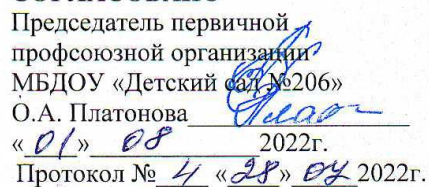 Председатель первичной
профсоюзной организации
МБДОУ «Детский сад №206»
О.А. Платонова
«01» 08 2022г.
Протокол № 4 «28» 07 2022г.